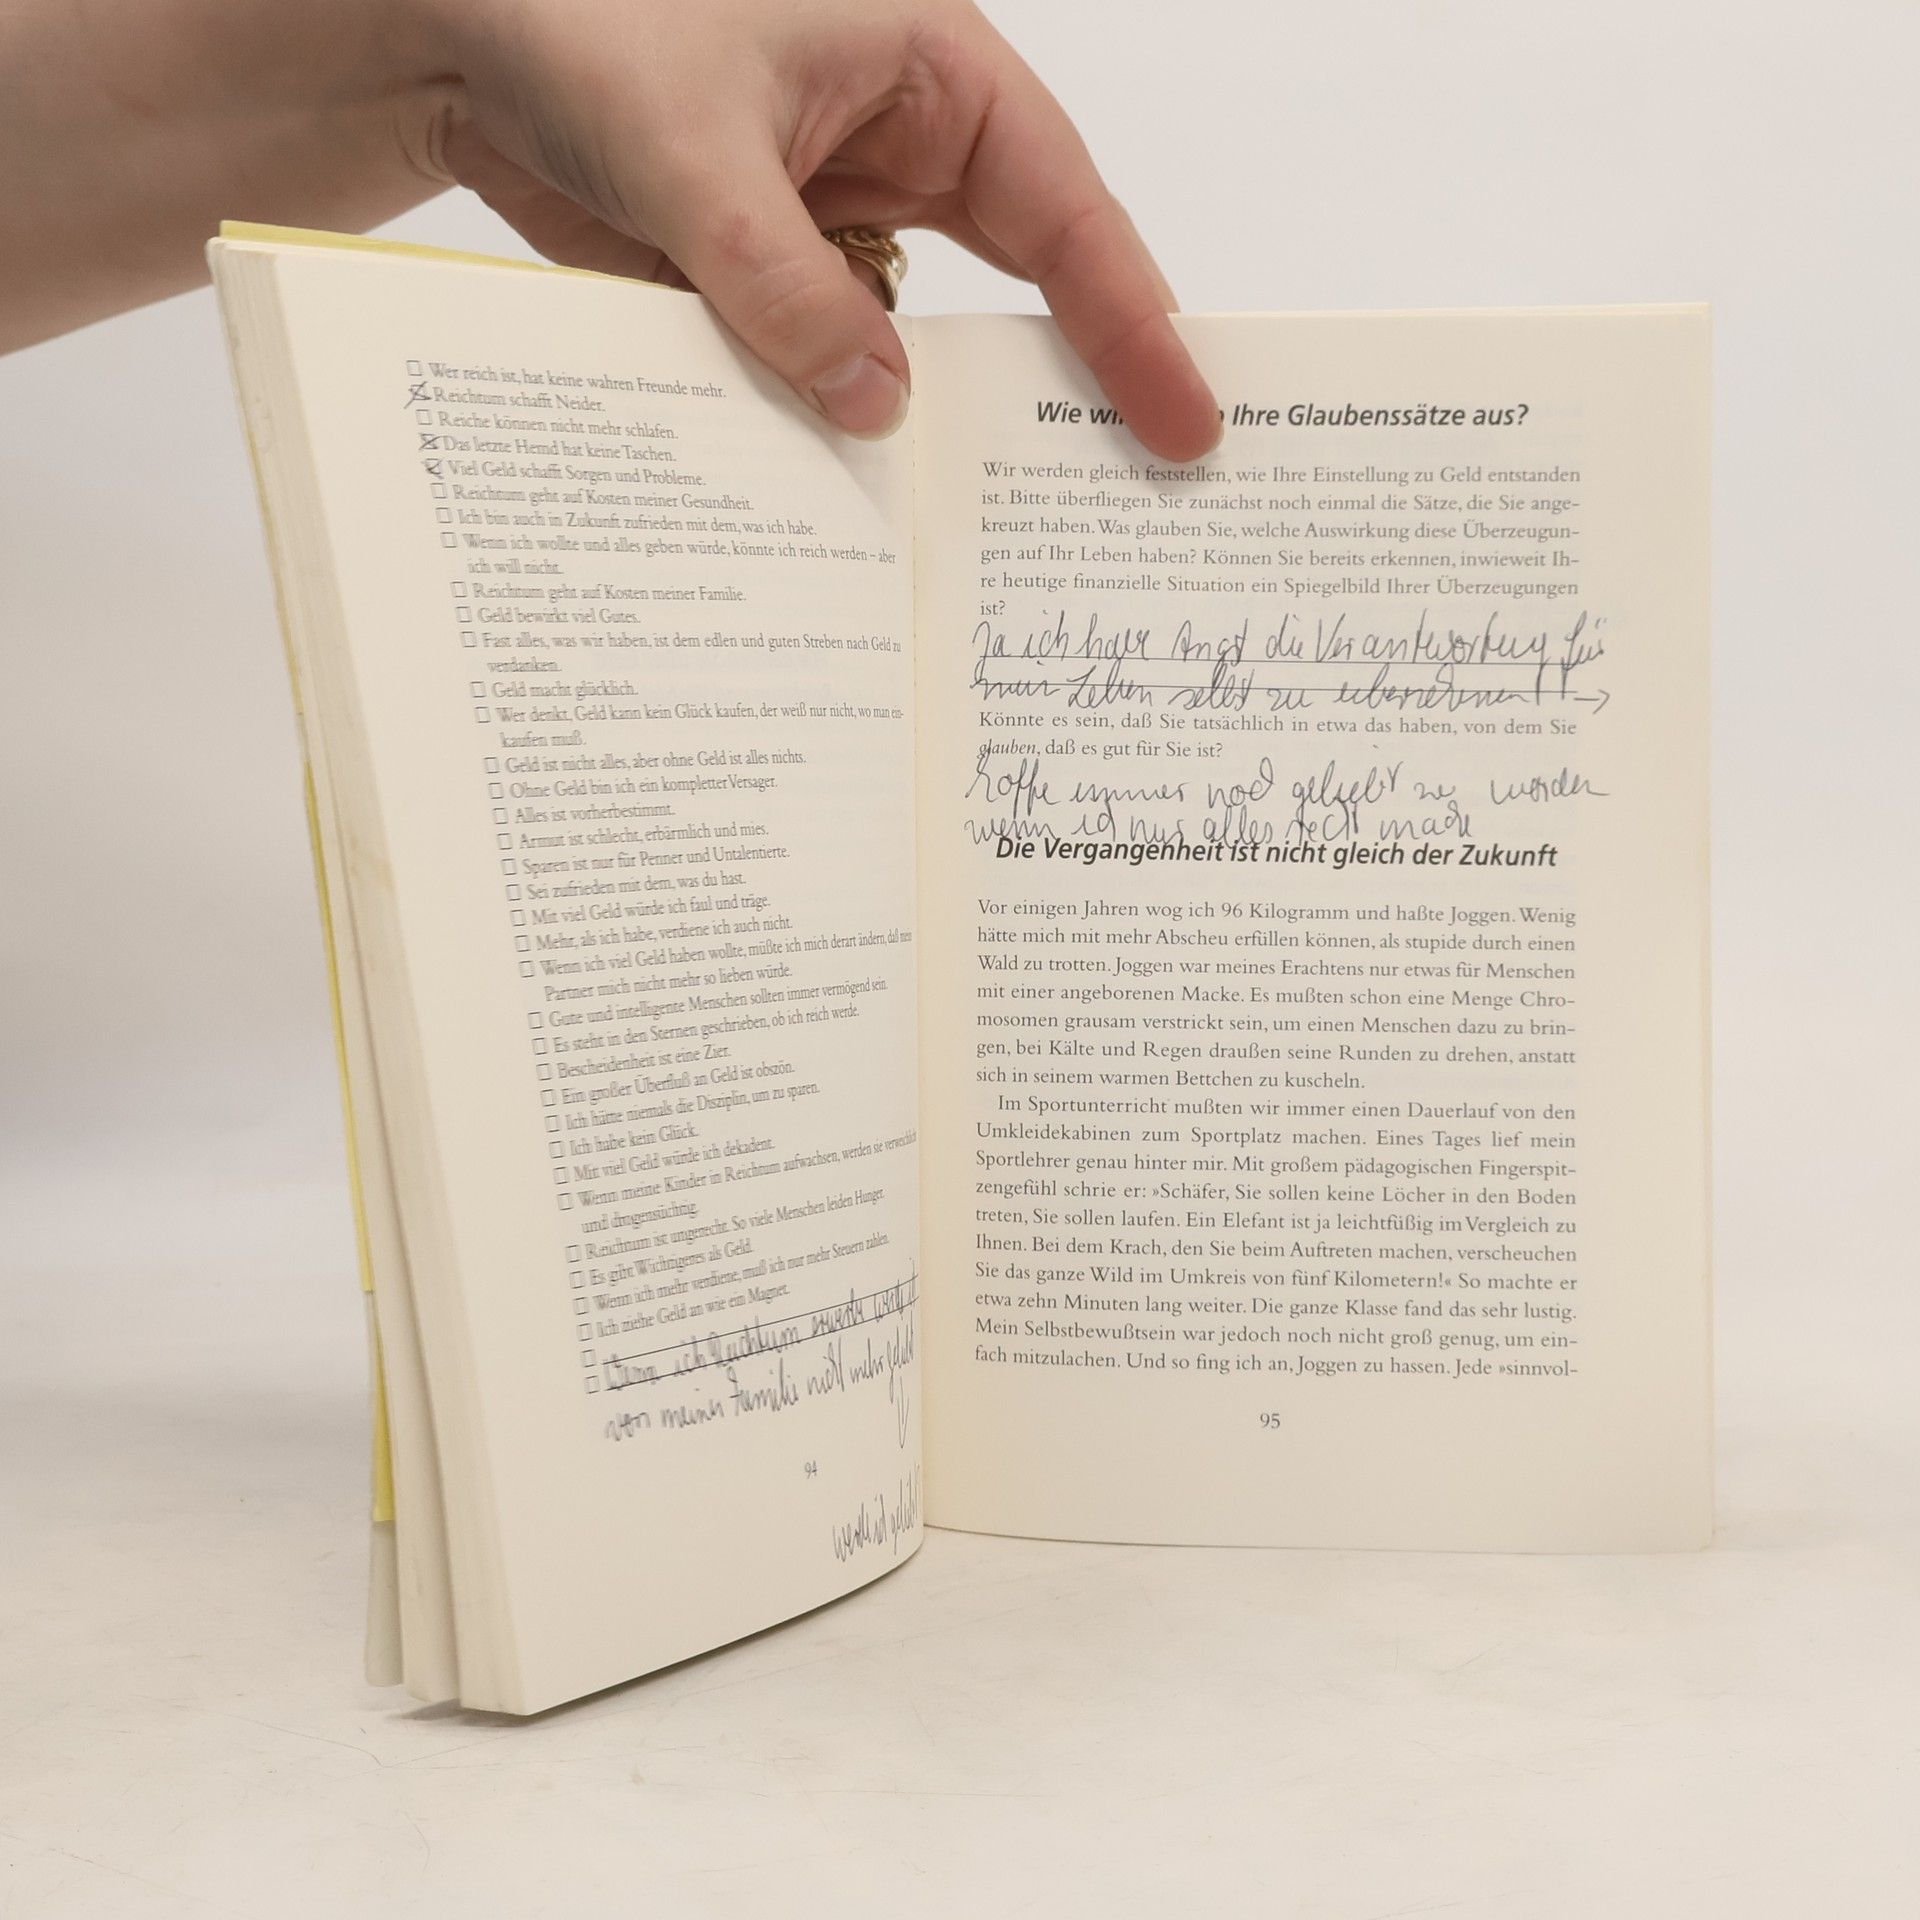 ☐ Wer reich ist, hat keine wahren Freunde mehr.
☒ Reichtum schafft Neider.
☐ Reiche können nicht mehr schlafen.
☒ Das letzte Hemd hat keine Taschen.
☒ Viel Geld schafft Sorgen und Probleme.
☐ Reichtum geht auf Kosten meiner Gesundheit.
☐ Ich bin auch in Zukunft zufrieden mit dem, was ich habe.
☐ Wenn ich wollte und alles geben würde, könnte ich reich werden – aber
ich will nicht.
☐ Reichtum geht auf Kosten meiner Familie.
☐ Geld bewirkt viel Gutes.
☐ Fast alles, was wir haben, ist dem edlen und guten Streben nach Geld zu
verdanken.
☐ Geld macht glücklich.
☐ Wer denkt, Geld kann kein Glück kaufen, der weiß nur nicht, wo man ein-
kaufen muß.
☐ Geld ist nicht alles, aber ohne Geld ist alles nichts.
☐ Ohne Geld bin ich ein kompletter Versager.
☐ Alles ist vorherbestimmt.
☐ Armut ist schlecht, erbärmlich und mies.
☐ Sparen ist nur für Penner und Untalentierte.
☐ Sei zufrieden mit dem, was du hast.
☐ Mit viel Geld würde ich faul und träge.
☐ Mehr, als ich habe, verdiene ich auch nicht.
☐ Wenn ich viel Geld haben wollte, müßte ich mich derart ändern, daß mein
Partner mich nicht mehr so lieben würde.
☐ Gute und intelligente Menschen sollten immer vermögend sein.
☐ Es steht in den Sternen geschrieben, ob ich reich werde.
☐ Bescheidenheit ist eine Zier.
☐ Ein großer Überfluß an Geld ist obszön.
☐ Ich hätte niemals die Disziplin, um zu sparen.
☐ Ich habe kein Glück.
☐ Mit viel Geld würde ich dekadent.
☐ Wenn meine Kinder in Reichtum aufwachsen, werden sie verweichlicht
und drogensüchtig.
☐ Reichtum ist ungerecht. So viele Menschen leiden Hunger.
☐ Es gibt Wichtigeres als Geld.
☐ Wenn ich mehr verdiene, muß ich nur mehr Steuern zahlen.
☐ Ich ziehe Geld an wie ein Magnet.
☐ Wenn ich Reichtum erwerbe werde ich
☐ von meiner Familie nicht mehr geliebt
94
werde ich geliebt
Wie Ihre Glaubenssätze aus?
Wir werden gleich feststellen, wie Ihre Einstellung zu Geld entstanden
ist. Bitte überfliegen Sie zunächst noch einmal die Sätze, die Sie ange-
kreuzt haben. Was glauben Sie, welche Auswirkung diese Überzeugun-
gen auf Ihr Leben haben? Können Sie bereits erkennen, inwieweit Ih-
re heutige finanzielle Situation ein Spiegelbild Ihrer Überzeugungen
ist?
Ja ich habe Angst die Verantwortung für
mein Leben selbst zu übernehmen! →
Könnte es sein, daß Sie tatsächlich in etwa das haben, von dem Sie
glauben, daß es gut für Sie ist?
hoffe immer noch geliebt zu werden
wenn ich nur alles recht mache
Die Vergangenheit ist nicht gleich der Zukunft
Vor einigen Jahren wog ich 96 Kilogramm und haßte Joggen. Wenig
hätte mich mit mehr Abscheu erfüllen können, als stupide durch einen
Wald zu trotten. Joggen war meines Erachtens nur etwas für Menschen
mit einer angeborenen Macke. Es mußten schon eine Menge Chro-
mosomen grausam verstrickt sein, um einen Menschen dazu zu brin-
gen, bei Kälte und Regen draußen seine Runden zu drehen, anstatt
sich in seinem warmen Bettchen zu kuscheln.
Im Sportunterricht mußten wir immer einen Dauerlauf von den
Umkleidekabinen zum Sportplatz machen. Eines Tages lief mein
Sportlehrer genau hinter mir. Mit großem pädagogischen Fingerspit-
zengefühl schrie er: »Schäfer, Sie sollen keine Löcher in den Boden
treten, Sie sollen laufen. Ein Elefant ist ja leichtfüßig im Vergleich zu
Ihnen. Bei dem Krach, den Sie beim Auftreten machen, verscheuchen
Sie das ganze Wild im Umkreis von fünf Kilometern!« So machte er
etwa zehn Minuten lang weiter. Die ganze Klasse fand das sehr lustig.
Mein Selbstbewußtsein war jedoch noch nicht groß genug, um ein-
fach mitzulachen. Und so fing ich an, Joggen zu hassen. Jede »sinnvol-
95